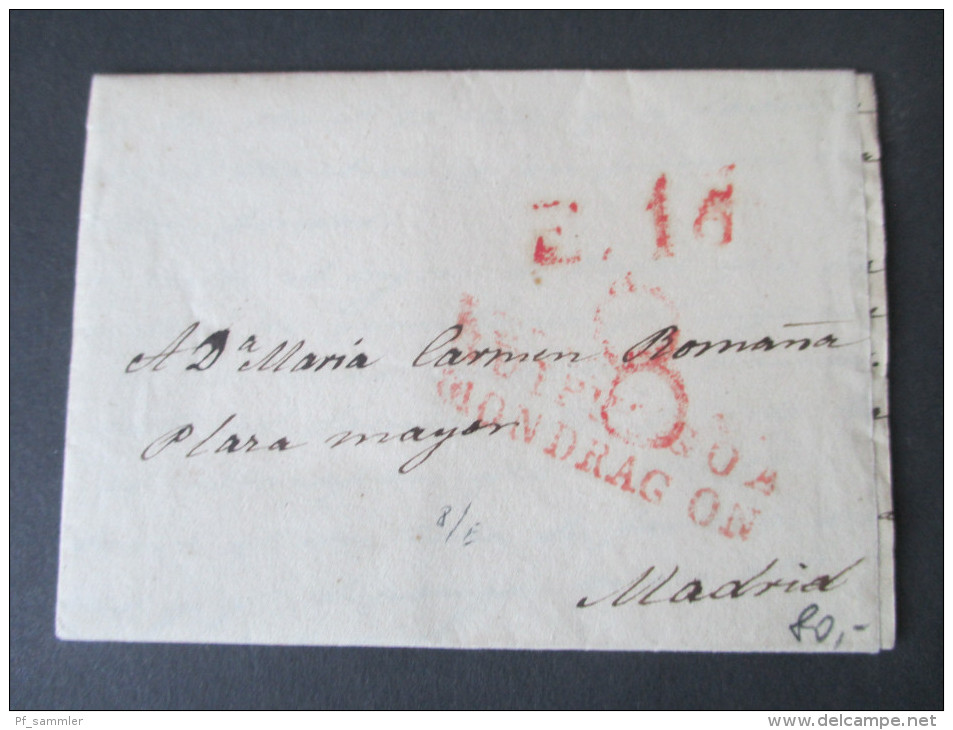 E. 16
8
GUIPUZCOA
MONDRAGON
A Dª Maria Carmen Romaña
Plaza mayor
8/E
Madrid
80,-
Pf_sammler
www.delcampe.net